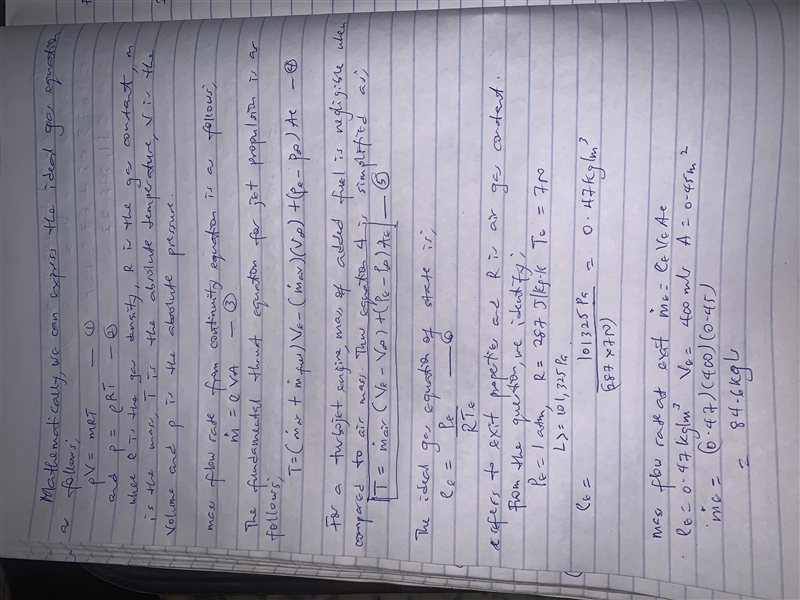 Mathematically, we can express the ideal gas equation
as follows,
pV = mRT — ①
and p = ρRT — ②
where ρ is the gas density, R is the gas constant, m
is the mass, T is the absolute temperature, V is the
Volume and p is the absolute pressure.
mass flow rate from continuity equation is as follows,
ṁ = ρVA — ③
The fundamental thrust equation for jet propulsion is as
follows,
T = (ṁair + ṁfuel)Ve - (ṁair)(V∞) + (Pe - P∞)Ae — ④
For a turbojet engine, mass of added fuel is negligible when
compared to air mass. Then equation 4 is simplified as,
T = ṁair (Ve - V∞) + (Pe - P∞)Ae — ⑤
The ideal gas equation of state is,
ρe = Pe / RTe — ⑥
e refers to exit properties and R is air gas constant.
from the question, we identify;
Pe = 1 atm R = 287 J/kg·K Te = 750
↳ = 101,325 Pa
ρe = 101325 Pa / (287 × 750) = 0.47 kg/m³
mass flow rate at exit ṁe = ρe Ve Ae
ρe = 0.47 kg/m³ Ve = 400 m/s A = 0.45 m²
ṁe = (0.47)(400)(0.45)
= 84.6 kg/s